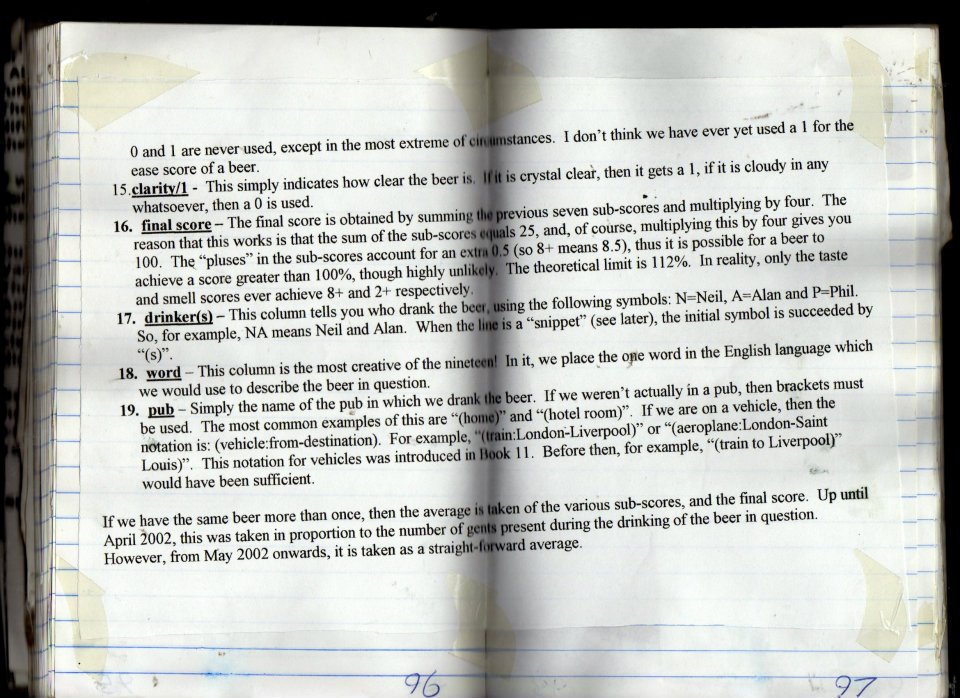 0 and 1 are never used, except in the most extreme of circumstances. I don't think we have ever yet used a 1 for the
ease score of a beer.
15. clarity/1 - This simply indicates how clear the beer is. If it is crystal clear, then it gets a 1, if it is cloudy in any
whatsoever, then a 0 is used.
16. final score – The final score is obtained by summing the previous seven sub-scores and multiplying by four. The
reason that this works is that the sum of the sub-scores equals 25, and, of course, multiplying this by four gives you
100. The "pluses" in the sub-scores account for an extra 0.5 (so 8+ means 8.5), thus it is possible for a beer to
achieve a score greater than 100%, though highly unlikely. The theoretical limit is 112%. In reality, only the taste
and smell scores ever achieve 8+ and 2+ respectively.
17. drinker(s) – This column tells you who drank the beer, using the following symbols: N=Neil, A=Alan and P=Phil.
So, for example, NA means Neil and Alan. When the line is a "snippet" (see later), the initial symbol is succeeded by
"(s)".
18. word – This column is the most creative of the nineteen! In it, we place the one word in the English language which
we would use to describe the beer in question.
19. pub – Simply the name of the pub in which we drank the beer. If we weren't actually in a pub, then brackets must
be used. The most common examples of this are "(home)" and "(hotel room)". If we are on a vehicle, then the
notation is: (vehicle:from-destination). For example, "(train:London-Liverpool)" or "(aeroplane:London-Saint
Louis)". This notation for vehicles was introduced in Book 11. Before then, for example, "(train to Liverpool)"
would have been sufficient.
If we have the same beer more than once, then the average is taken of the various sub-scores, and the final score. Up until
April 2002, this was taken in proportion to the number of gents present during the drinking of the beer in question.
However, from May 2002 onwards, it is taken as a straight-forward average.
96
97